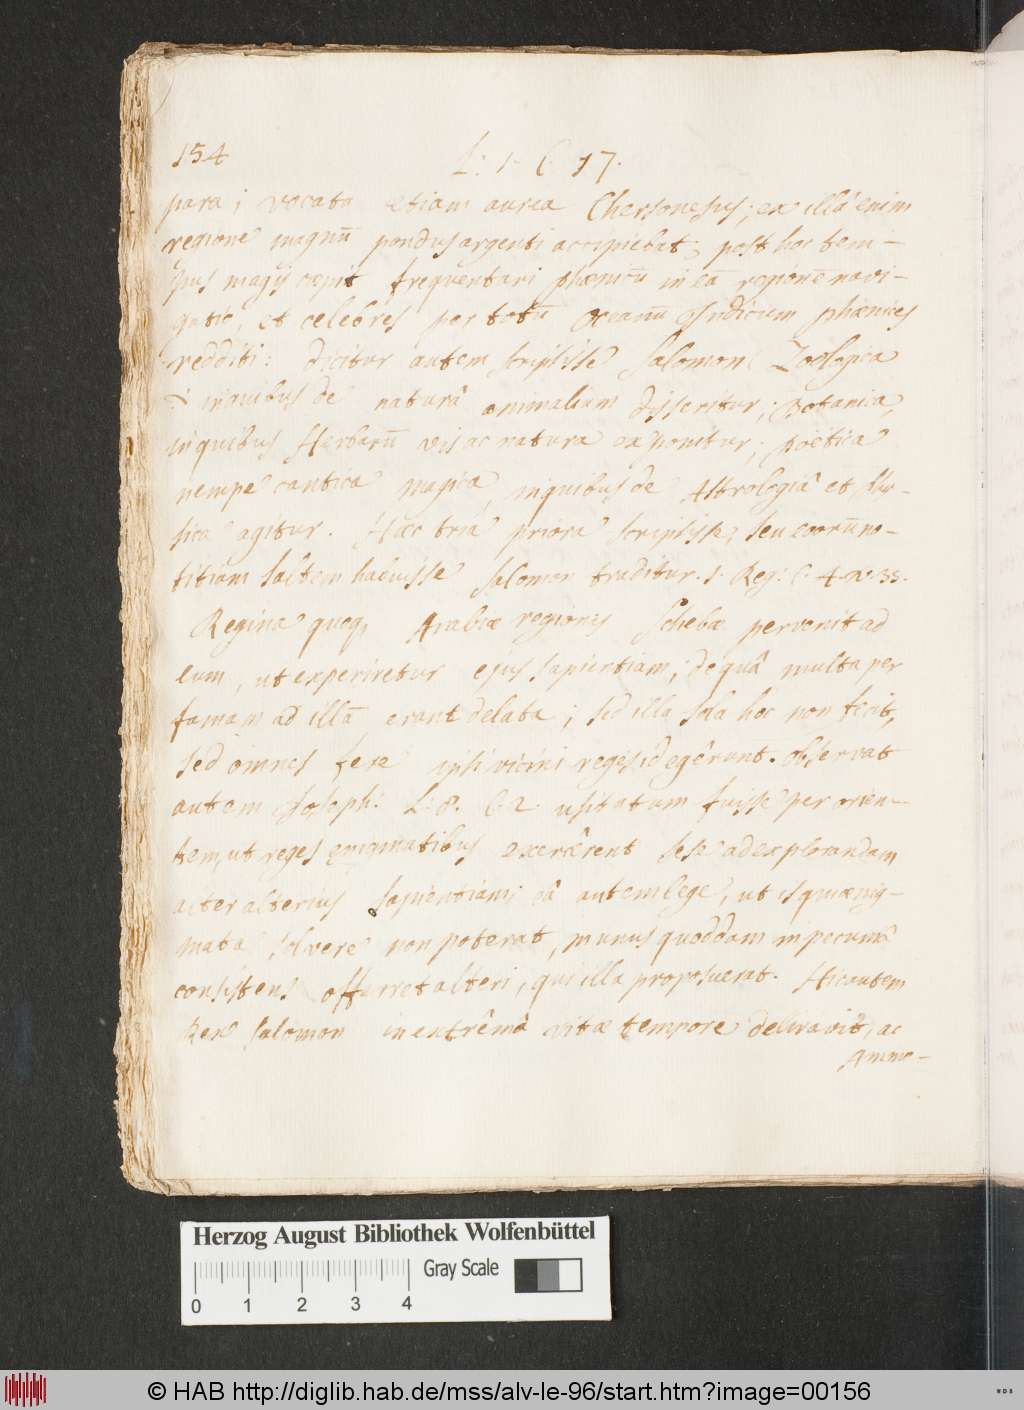 154
L: 1. C 17.
para; vocata etiam aurea Chersonesus; ex illâ enim
regione magnū pondus argenti accipiebat; post hoc tem-
pus magis cæpit frequentari phænicū in eā regione navi-
gatio, et celebres per totū Oceanū Indicum phænices
redditi: dicitur autem scripsisse Salomon Zoologica
in quibus de naturâ animalium disseritur; Botanica,
in quibus Herbarū vis ac natura exponitur; poëtica
nempe cantica magica, in quibus de Astrologiâ et Mu-
sica agitur. Hæc tria priora scripsisse, seu eorū no-
titiam saltem habuisse Salomon traditur. 1. Reg: C. 4. v. 33.
Regina quoq, Arabiæ regionis Schebæ pervenit ad
eum, ut experiretur ejus sapientiam; de quâ multa per
famam ad illā erant delata; sed illa sola hoc non fecit,
sed omnes fere ipsi vicini reges id egêrunt. Observat
autem Joseph: L. 8. C. 2. usitatum fuisse per orien-
tem, ut reges ęnigmatibus exercêrent sese ad explorandam
alter alterius sapientiam; eâ autem lege, ut is qui ænig-
mata solvere non poterat, munus quoddam in pecuniâ
consistens offerret alteri, qui illa proposuerat. Hic autem
Rex Salomon in extrêmo vitæ tempore deliravit, ac
Ammo-
Herzog August Bibliothek Wolfenbüttel
Gray Scale
0 1 2 3 4
© HAB http://diglib.hab.de/mss/alv-le-96/start.htm?image=00156